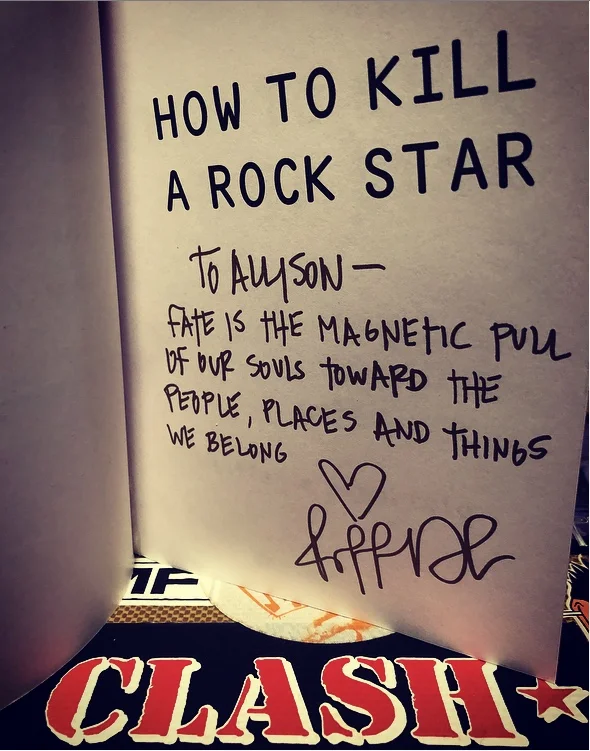 HOW TO KILL
A ROCK STAR
TO ALLYSON —
FATE IS THE MAGNETIC PULL
OF OUR SOULS TOWARD THE
PEOPLE, PLACES AND THINGS
WE BELONG
CLASH